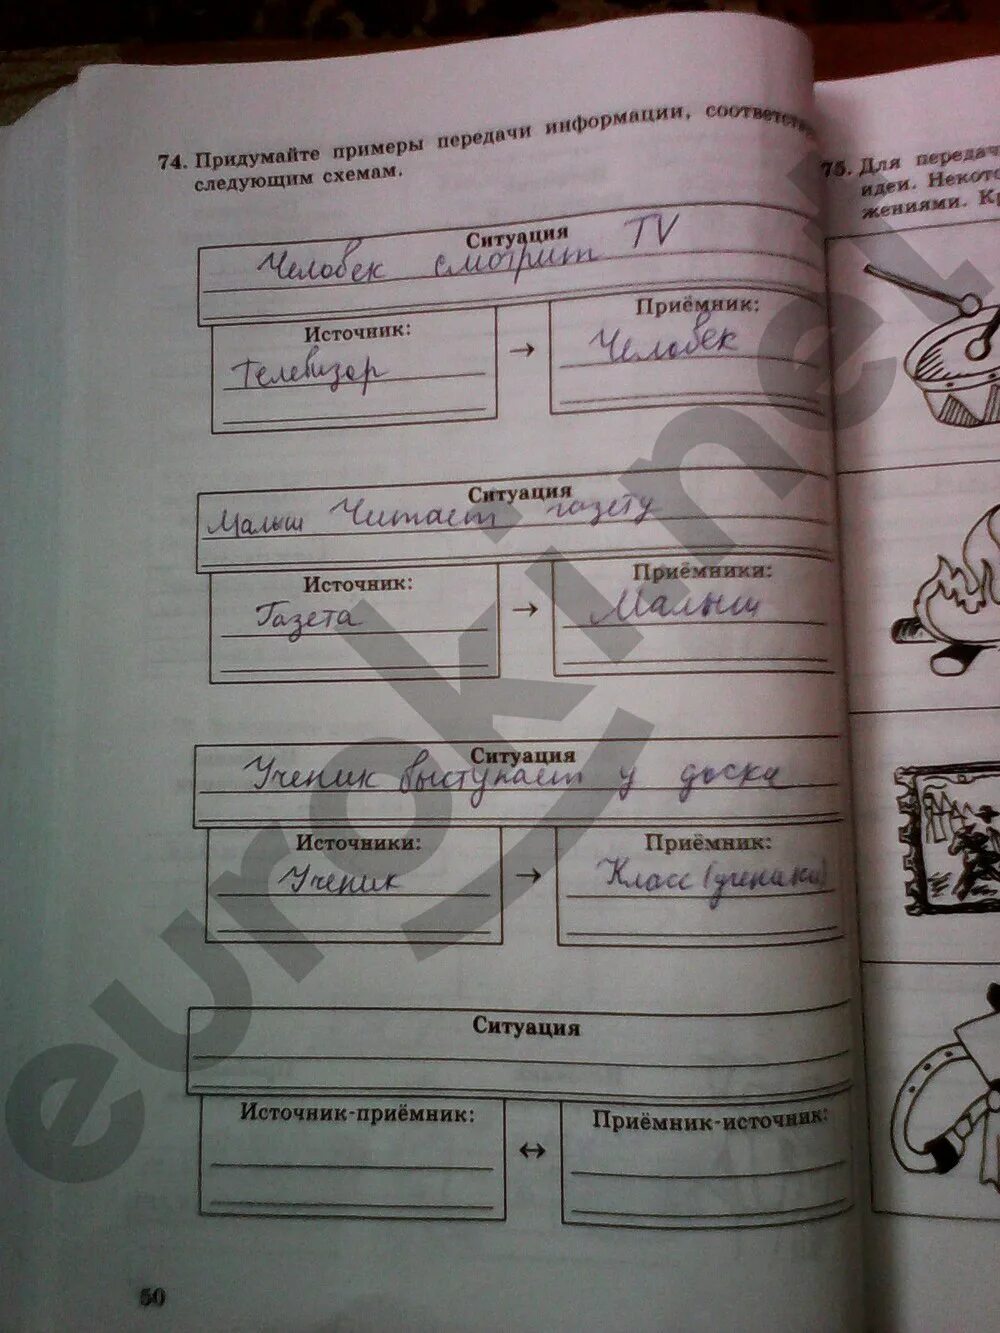 74. Придумайте примеры передачи информации, соответств
следующим схемам.
Ситуация
Человек смотрит TV
Источник:
Телевизор
→
Приёмник:
Человек
Ситуация
Малыш Читает газету
Источник:
Газета
→
Приёмники:
Малыш
Ситуация
Ученик выступает у доска
Источники:
Ученик
→
Приёмник:
Класс (ученики)
Ситуация
Источник-приёмник:
↔
Приёмник-источник:
50
75. Для передач
идеи. Некото
жениями. Кр
eurokinet